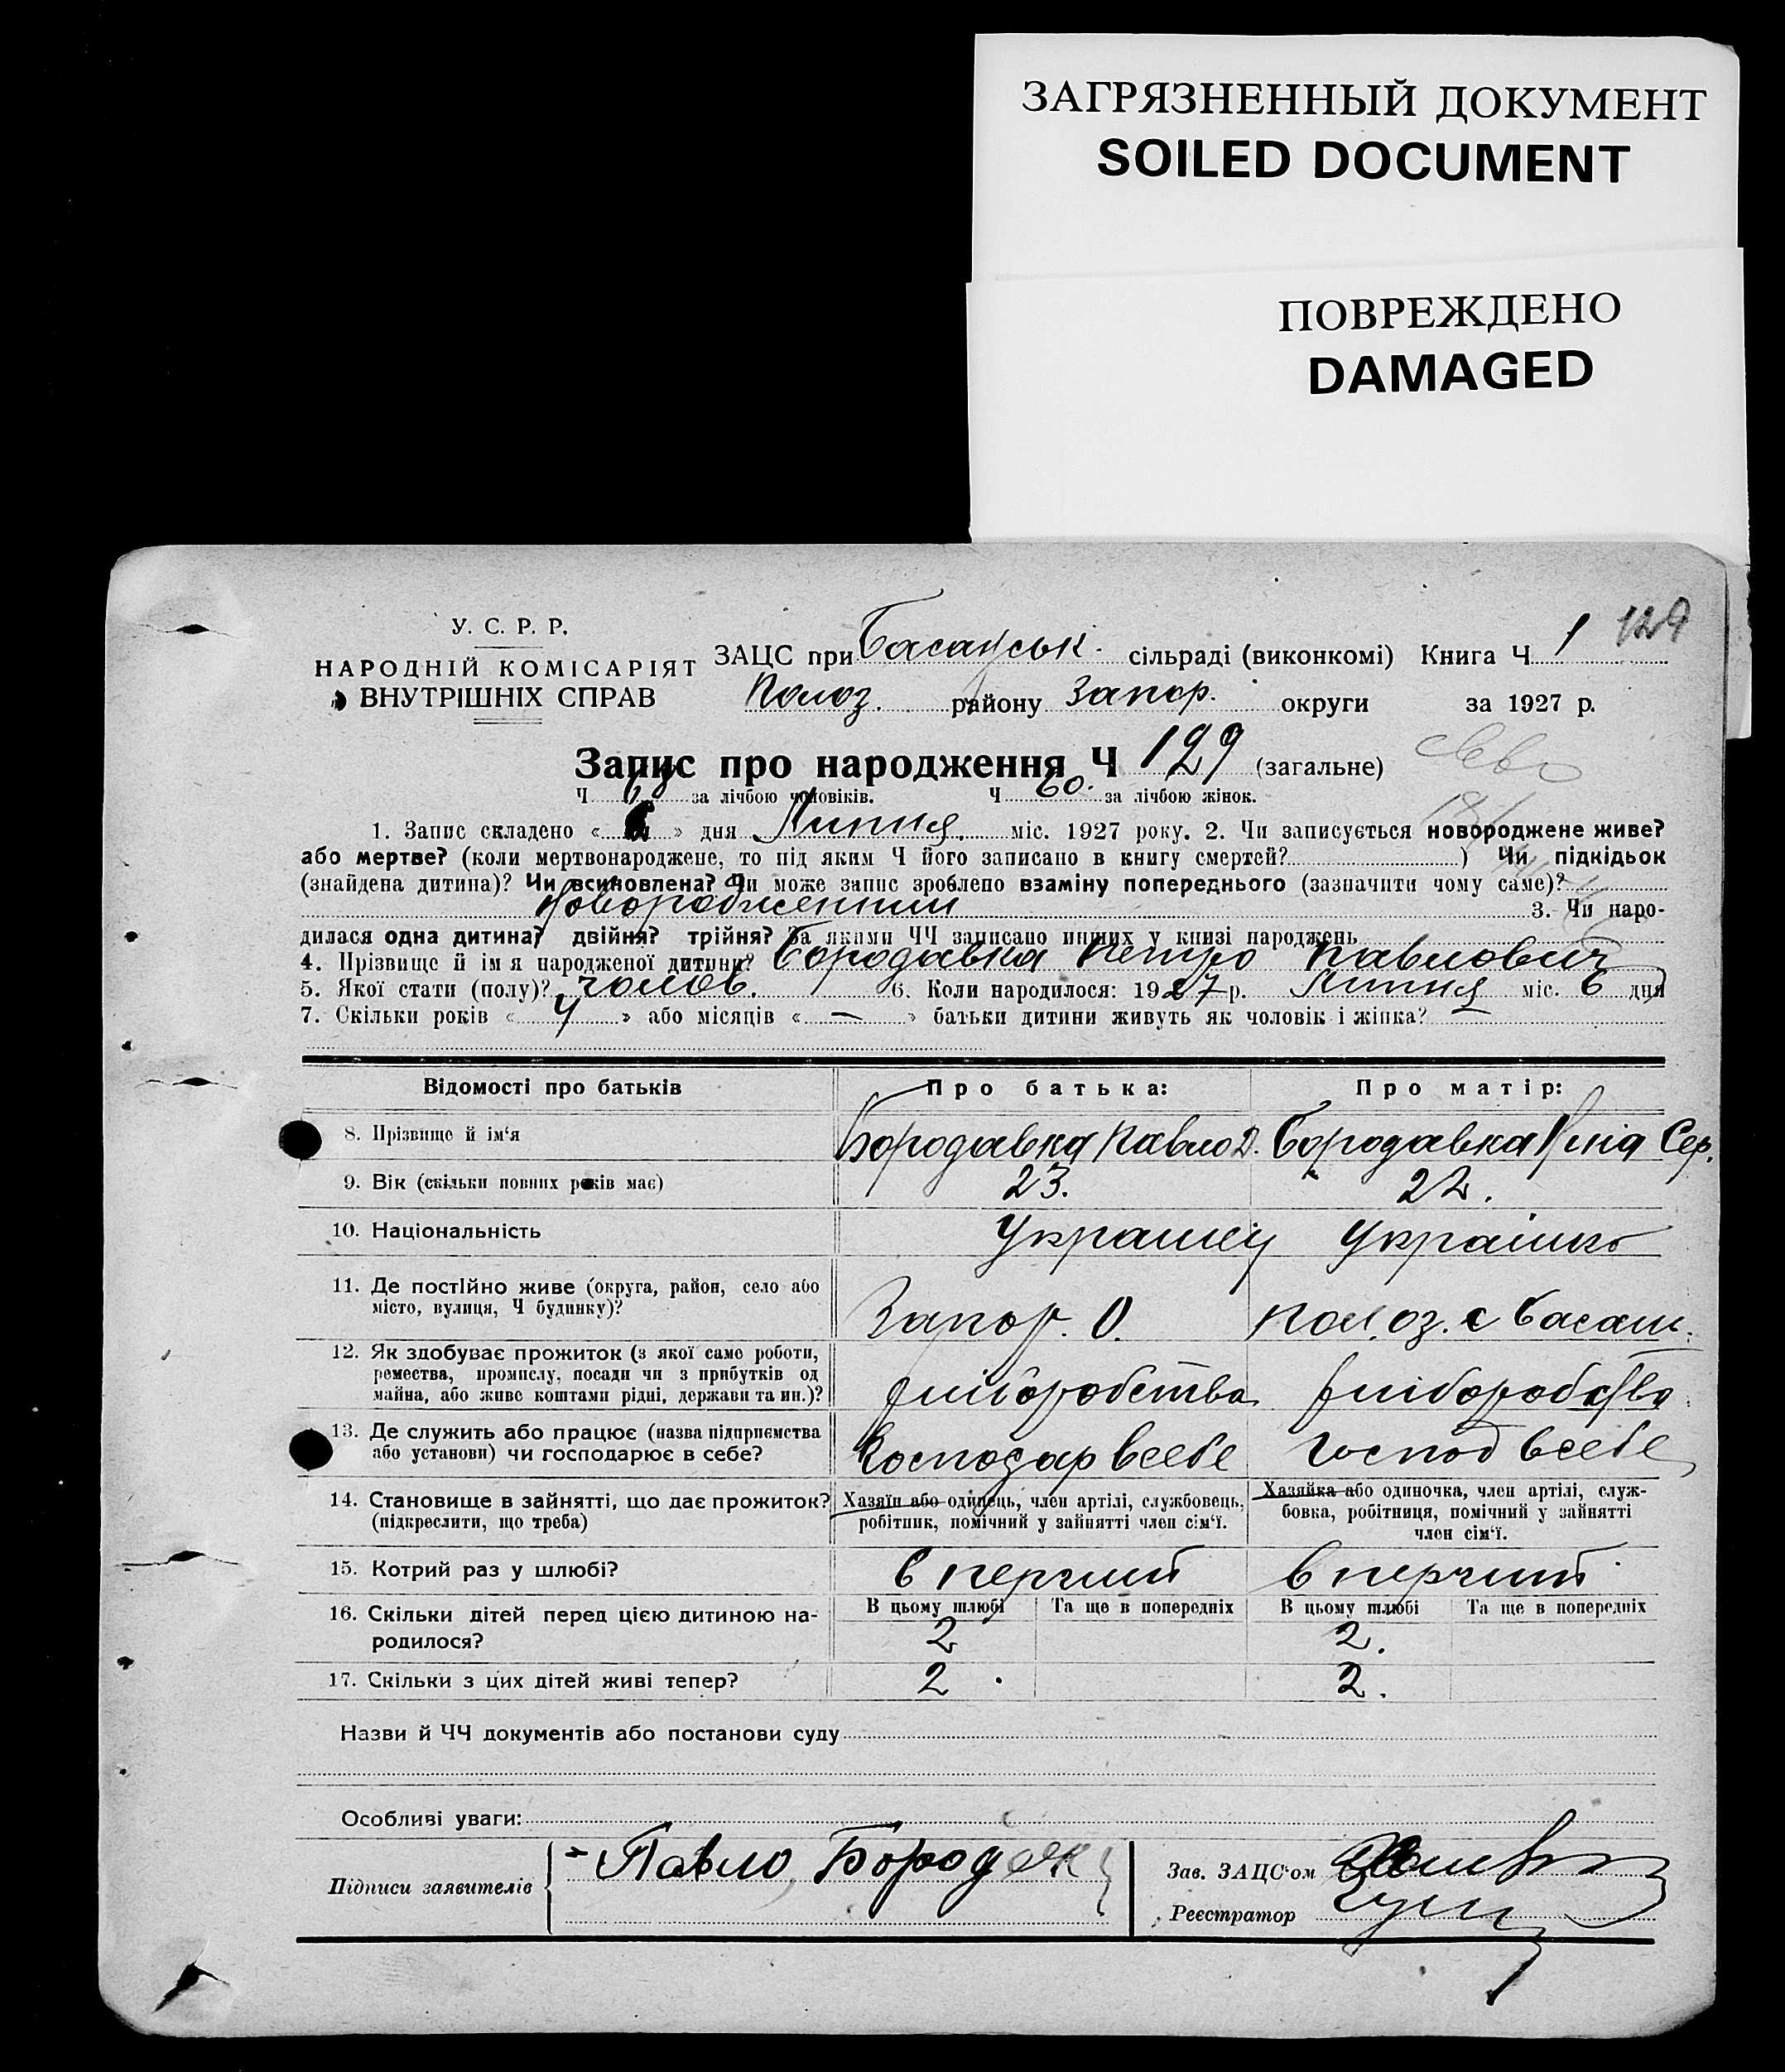 ЗАГРЯЗНЕННЫЙ ДОКУМЕНТ
SOILED DOCUMENT
ПОВРЕЖДЕНО
DAMAGED
129
У. С. Р. Р.
НАРОДНІЙ КОМІСАРІЯТ
ВНУТРІШНІХ СПРАВ
ЗАЦС при Басанські. сільраді (виконкомі) Книга Ч 1
Полоз. району Запор. округи за 1927 р.
Запис про народження Ч 129 (загальне)
Ч за лічбою чоловіків. Ч 60. за лічбою жінок.
1. Запис складено « » дня Липня. міс. 1927 року. 2. Чи записується новороджене живе?
або мертве? (коли мертвонароджене, то під яким Ч його записано в книгу смертей? ) Чи підкідьок
(знайдена дитина)? Чи всиновлена? Чи може запис зроблено взаміну попереднього (зазначити чому саме)?
3. Чи наро-
дилася одна дитина? двійня? трійня? За якими ЧЧ записано инших у книзі народжень
4. Прізвище й ім я народженої дитини? Бородавка Петро Павлович
5. Якої стати (полу)? чолов. 6. Коли народилося: 1927 р. Липня міс. 6 дня
7. Скільки років « 4 » або місяців « — » батьки дитини живуть як чоловік і жінка?
Відомості про батьків Про батька: Про матір:
8. Прізвище й ім‘я Бородавка Павло Д. Бородавка Сер.
9. Вік (скільки повних років має) 23. 22.
10. Національність
11. Де постійно живе (округа, район, село або
місто, вулиця, Ч будинку)? Запор. О. Полоз. с Басань.
12. Як здобуває прожиток (з якої саме роботи,
ремества, промислу, посади чи з прибутків од
майна, або живе коштами рідні, держави та ин.)? хліборобства хлібороб
13. Де служить або працює (назва підприємства
або установи) чи господарює в себе? Господар всебе Господ всебе
14. Становище в зайнятті, що дає прожиток?
(підкреслити, що треба)
Хазяїн або одинець, член артілі, службовець,
робітник, помічний у зайнятті член сім‘ї.
Хазяйка або одиночка, член артілі, служ-
бовка, робітниця, помічний у зайнятті
член сім‘ї.
15. Котрий раз у шлюбі? в перчий в перчий
16. Скільки дітей перед цією дитиною на-
родилося?
В цьому шлюбі Та ще в попередніх В цьому шлюбі Та ще в попередніх
2 2.
17. Скільки з цих дітей живі тепер? 2. 2.
Назви й ЧЧ документів або постанови суду
Особливі уваги:
Підписи заявителів Павло,
Зав. ЗАЦС‘ом
Реєстратор